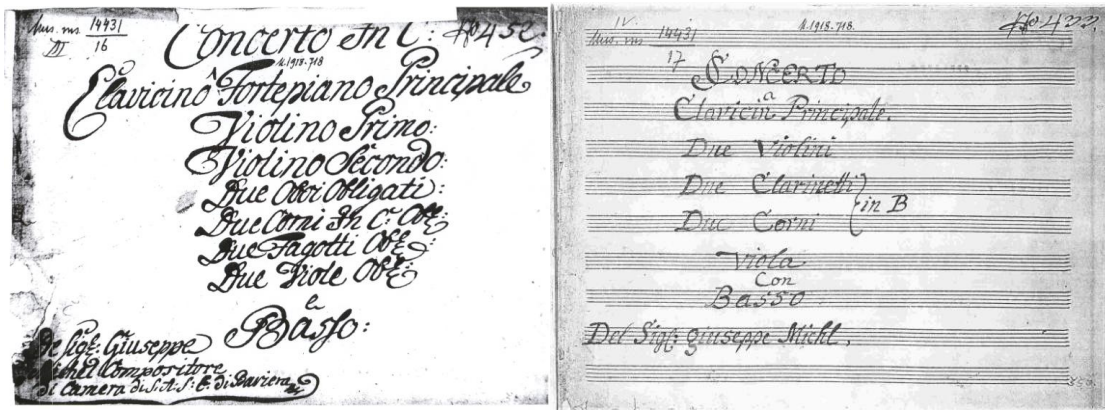 Mus. ms. 14431
III 16
Concerto In C: No 452.
N.1918.718
Clavicino ô Fortepiano Principale
Violino Primo:
Violino Secondo:
Due Oboi Obligati:
Due Corni In C: Obl:
Due Fagotti Obl:
Due Viole Obl:
e
Basso:
Del Sigl: Giuseppe
Michel Compositore
di Camera di S: A: S: E: di Baviera
IV.
Mus. ms 14431
17
N.1918.718.
No 422.
CONCERTO
a
Clavicin Principale.
Due Violini
Due Clarinetti
in B
Due Corni
Viola
Con
Basso
Del Sigl: giuseppe Michl.